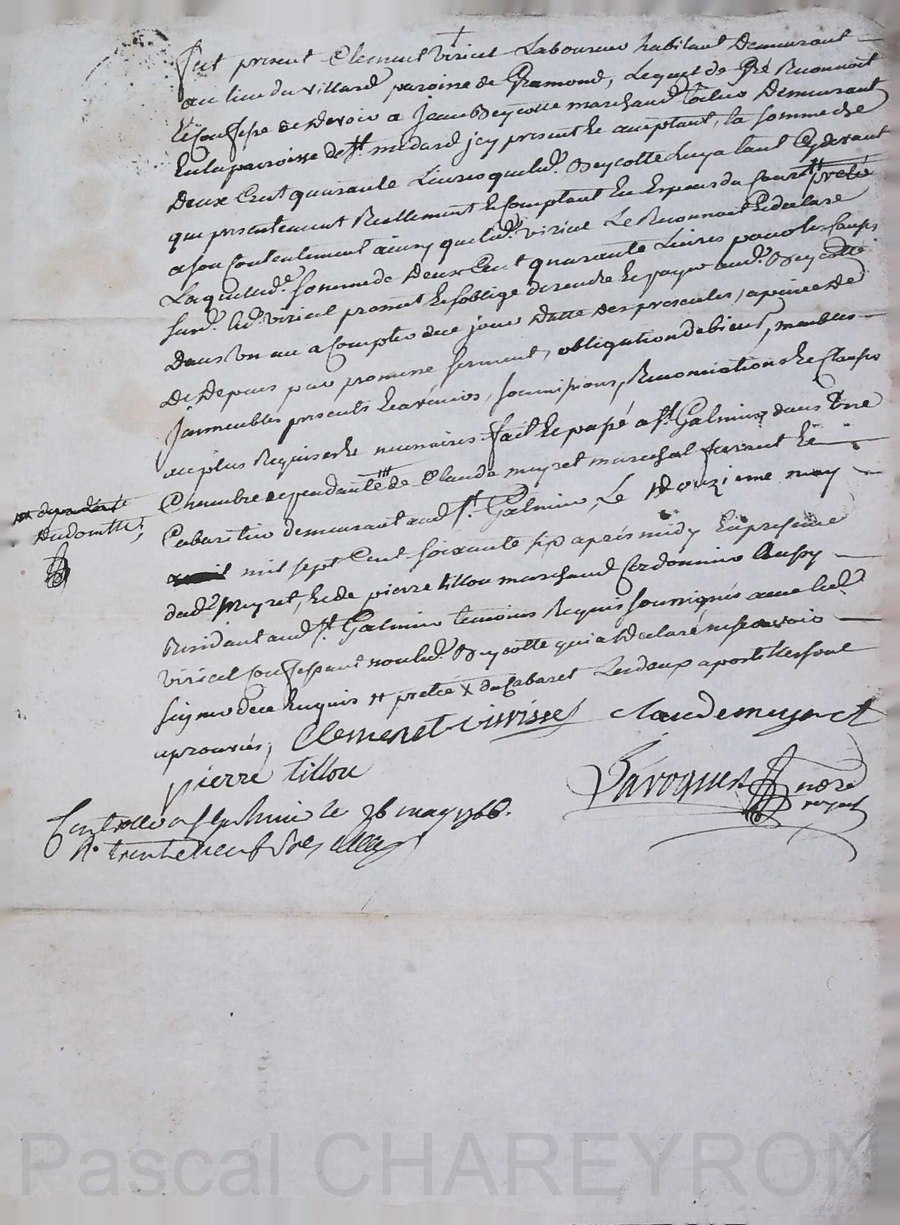 fut present Clement viricel Laboureur habitant Demeurant
au lieu du villard paroisse de Gramond, Lequel de Gré Reconnoit
et Confesse et devoir a Jean Beycotte marchand Demeurant
En la parroisse de st. medard jcy present et aceptant, la somme de
Deux Cent quarante Livres que led. Beycotte luy a tant Cy devant
que presentement Reellement et Comptant En Especes du Cours prété
a son Contentement ainsy que led. viricel Le Reconnoit et declare
Laquelle d. somme de Deux Cent quarante Livres pour les Causes
susd. led. viricel promet et soblige de rendre et payer aud. Beycotte
Dans Un an a Compter de ce jour Datte des presentes, a peine de
De Depens par promesse serment, obligation de biens, meubles
jmmeubles presents et avenirs, soumissions, Renonciations et Clauses
au plus Requises et necessaires fait et passé a st. Galmier dans Une
Chambre dependante de Claude meyret marechal ferrant et
Cabaretier demeurant aud. st. Galmier, Le Douzieme may
mil sept Cent soixante six après midy En presence
dud. Meyret, et de pierre tillou marchand Cordonnier Aussy
Residant aud. st. Galmier temoins Requis soussignés avec led.
viricel Confessant non led. Beycotte qui a declaré ne sçavoir
signer de ce Enquis # prété X du Cabaret Les deux apostilles sont
aprouvées,
Clement viricel
Claude meyret
pierre tillou
Controllé a st galmier le 26 may 1766.
R. trente neuf sols
Pascal CHAREYRON